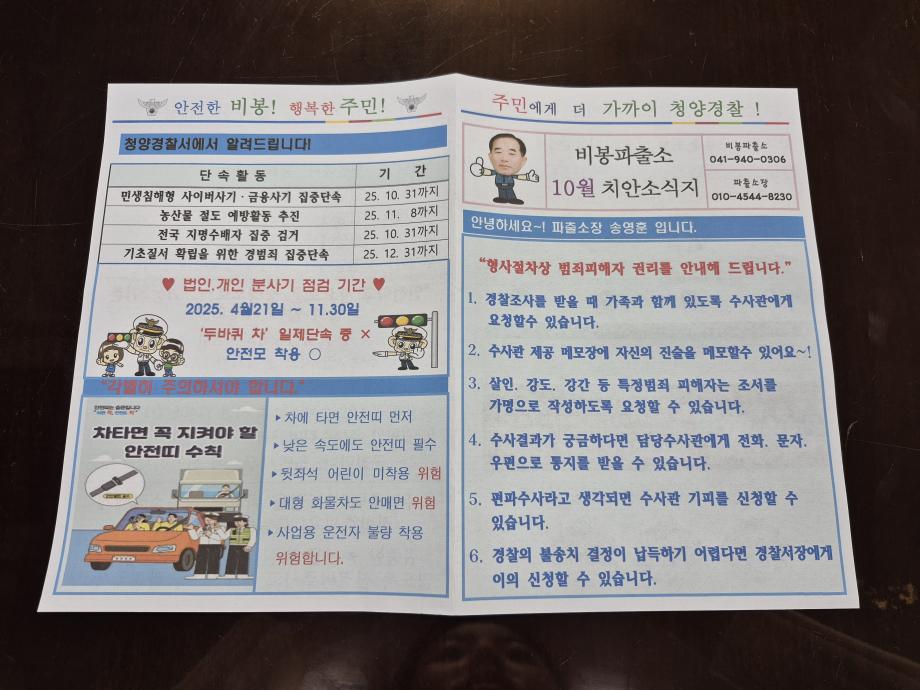 안전한 비봉! 행복한 주민!
청양경찰서에서 알려드립니다!
단 속 활 동 기 간
민생침해형 사이버사기·금융사기 집중단속 25. 10. 31까지
농산물 절도 예방활동 추진 25. 11. 8까지
전국 지명수배자 집중 검거 25. 10. 31까지
기초질서 확립을 위한 경범죄 집중단속 25. 12. 31까지
♥ 법인.개인 분사기 점검 기간 ♥
2025. 4월21일 ~ 11.30일
'두바퀴 차' 일제단속 중 ×
안전모 착용 ○
"각별히 주의하셔야 합니다."
차타면 꼭 지켜야 할
안전띠 수칙
▸차에 타면 안전띠 먼저
▸낮은 속도에도 안전띠 필수
▸뒷좌석 어린이 미착용 위험
▸대형 화물차도 안매면 위험
▸사업용 운전자 불량 착용
위험합니다.
주민에게 더 가까이 청양경찰 !
비봉파출소
10월 치안소식지
비봉파출소
041-940-0306
파출소장
010-4544-8230
안녕하세요~! 파출소장 송영훈 입니다.
"형사절차상 범죄피해자 권리를 안내해 드립니다."
1. 경찰조사를 받을 때 가족과 함께 있도록 수사관에게
요청할수 있습니다.
2. 수사관 제공 메모장에 자신의 진술을 메모할수 있어요~!
3. 살인, 강도, 강간 등 특정범죄 피해자는 조서를
가명으로 작성하도록 요청할 수 있습니다.
4. 수사결과가 궁금하다면 담당수사관에게 전화, 문자,
우편으로 통지를 받을 수 있습니다.
5. 편파수사라고 생각되면 수사관 기피를 신청할 수
있습니다.
6. 경찰의 불송치 결정이 납득하기 어렵다면 경찰서장에게
이의 신청할 수 있습니다.